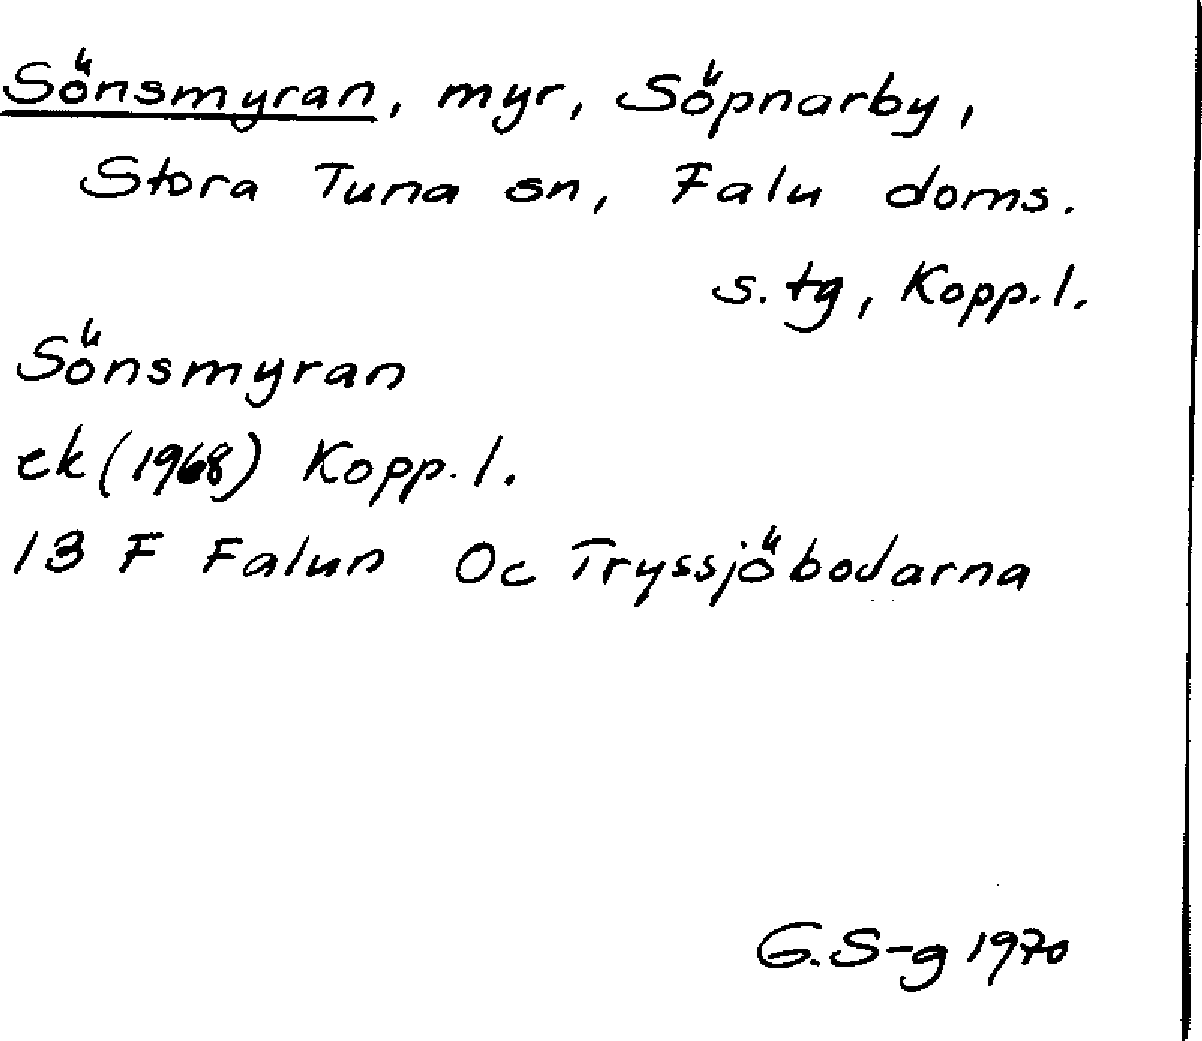 Sönsmyran, myr, Söpnarby,
Stora Tuna sn, Falu doms.
s. tg, Kopp. l.
Sönsmyran
ek (1968) Kopp. l.
13 F Falun Oc Tryssjöbodarna
G. S-g 1970